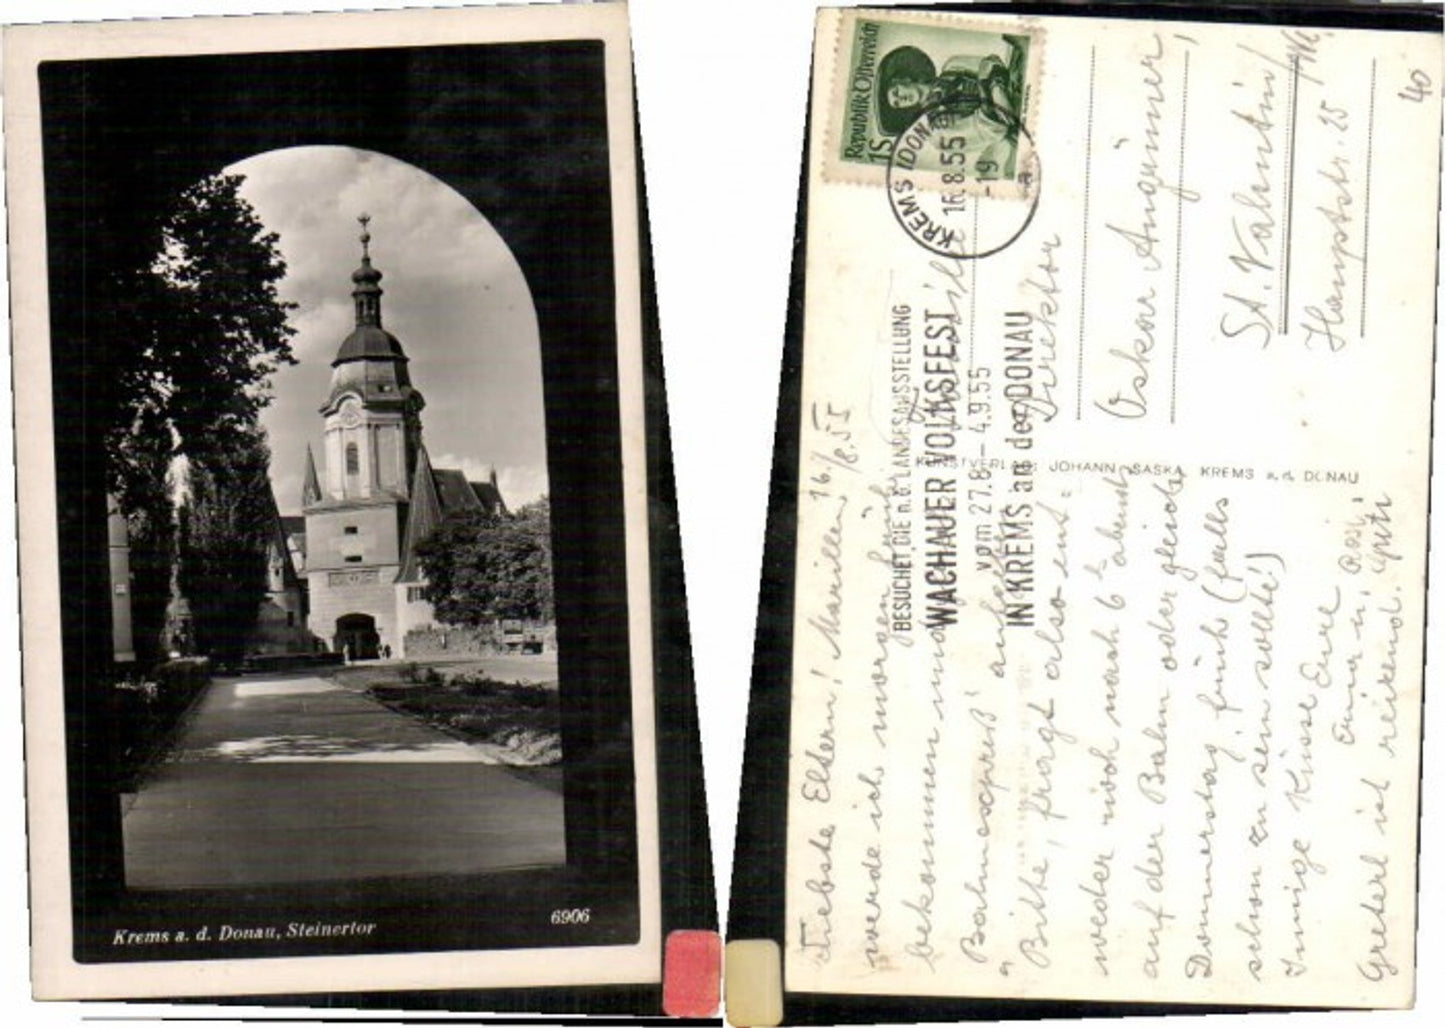 Krems a. d. Donau, Steinertor
6906
Republik Österreich
1S
KREMS (DONAU)
16.8.55
-19
BESUCHET DIE n.ö. LANDESAUSSTELLUNG
WACHAUER VOLKSFEST
vom 27.8.- 4.9.55
IN KREMS an der DONAU
KUNSTVERLAG JOHANN SASKA KREMS a. d. DONAU
40
Familie
Direktor
Oskar
St. Valentin/
Hauptstr. 25
16./8.55
Liebste Eltern! Marillen
werde ich morgen früh
bekommen und
"Bahnexpreß" aufgeben
Bitte, fragt also ent-
weder noch nach 6h abends
auf der Bahn oder gleich
Donnerstag früh (falls
schon zu sein sollte!)
Innige Küsse Eure
Greterl ist reizend.